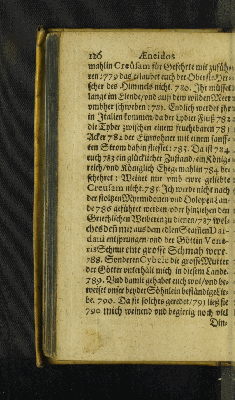 126 Æneidos
mahlin Creüsam für Geferhte mit zufüh=
ren: 779 das erlaubt euch der Oberste Herr=
scher des Himmels nicht. 780. Ihr müsset
lange im Elende/ und auff dem wilden Meer
umbher schweben: 781. Endlich werdet ihr
in Italien kommen/ da der Lydier Fluß 782
die Tyber zwischen einem fruchtbaren 781
Acker 782 der Einwoner mit einem sanff=
ten Strom dahin fliesset: 783. Da ist 784
euch 783 ein glücklicher Zustand/ ein König=
reich/ und Königlich Ehegemahlin 784 be=
schehret: Weinet nur umb eure geliebte
Creusam nicht. 785. Ich werde nicht nach
der stoltzen Myrmidonen und Dolopen Lan=
de 786 geführet werden/ oder hinziehen den
Griechischen Weibern zu dienen/ 787 wel=
ches den mir aus dem edlen Stam̃ en Dar=
dani entsprungen/ und der Göttin Vene=
ris Schnur eine grosse Schmah were.
788. Sondern Cybele die grosse Mutter
der Götter unterhält mich in diesem Lande.
789. Und damit gehabt euch wol/ und be=
weiset unser beyder Söhnlein beständige Lie=
be. 790. Da sie solches geredet/ 791 ließ sie
790 mich weinend und begierig noch viel
Din=